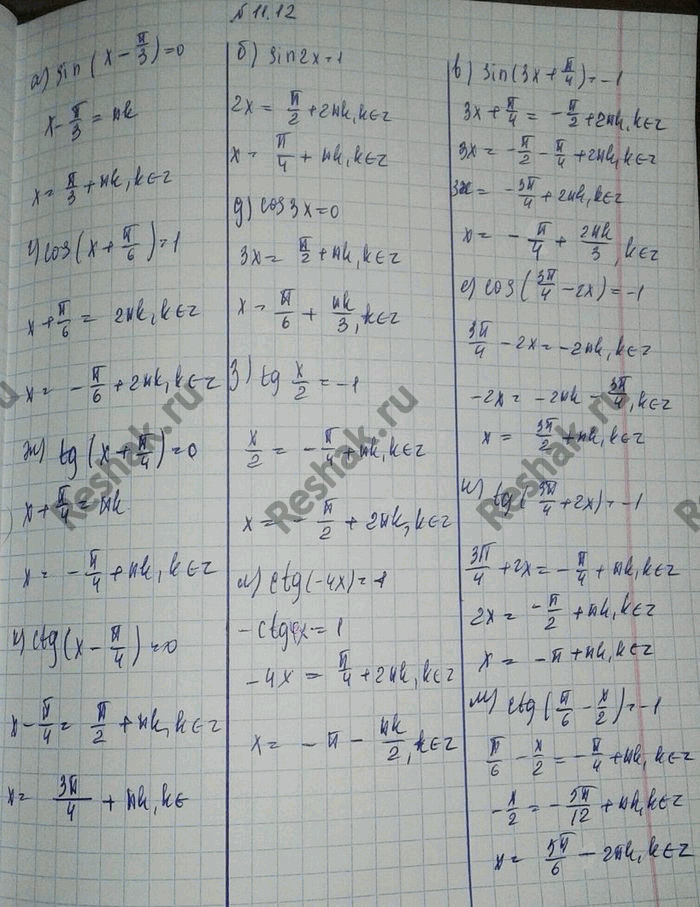 № 11.12
а) sin(x - π/3) = 0
x - π/3 = πk
x = π/3 + πk, k∈z
г) cos(x + π/6) = 1
x + π/6 = 2πk, k∈z
x = -π/6 + 2πk, k∈z
ж) tg(x + π/4) = 0
x + π/4 = πk
x = -π/4 + πk, k∈z
к) ctg(x - π/4) = 0
x - π/4 = π/2 + πk, k∈z
x = 3π/4 + πk, k∈
б) sin2x = 1
2x = π/2 + 2πk, k∈z
x = π/4 + πk, k∈z
д) cos3x = 0
3x = π/2 + πk, k∈z
x = π/6 + πk/3, k∈z
з) tg x/2 = -1
x/2 = -π/4 + πk, k∈z
x = -π/2 + 2πk, k∈z
л) ctg(-4x) = 1
-ctg4x = 1
-4x = π/4 + 2πk, k∈z
x = -π - πk/2, k∈z
в) sin(3x + π/4) = -1
3x + π/4 = -π/2 + 2πk, k∈z
3x = -π/2 - π/4 + 2πk, k∈z
3x = -3π/4 + 2πk, k∈z
x = -π/4 + 2πk/3, k∈z
е) cos(3π/4 - 2x) = -1
3π/4 - 2x = -2πk, k∈z
-2x = -2πk - 3π/4, k∈z
x = 3π/2 + πk, k∈z
и) tg(3π/4 + 2x) = -1
3π/4 + 2x = -π/4 + πk, k∈z
2x = -π/2 + πk, k∈z
x = -π + πk, k∈z
м) ctg(π/6 - x/2) = -1
π/6 - x/2 = -π/4 + πk, k∈z
-x/2 = -5π/12 + πk, k∈z
x = 5π/6 - 2πk, k∈z
Reshak.ru
Reshak.ru
Reshak.ru